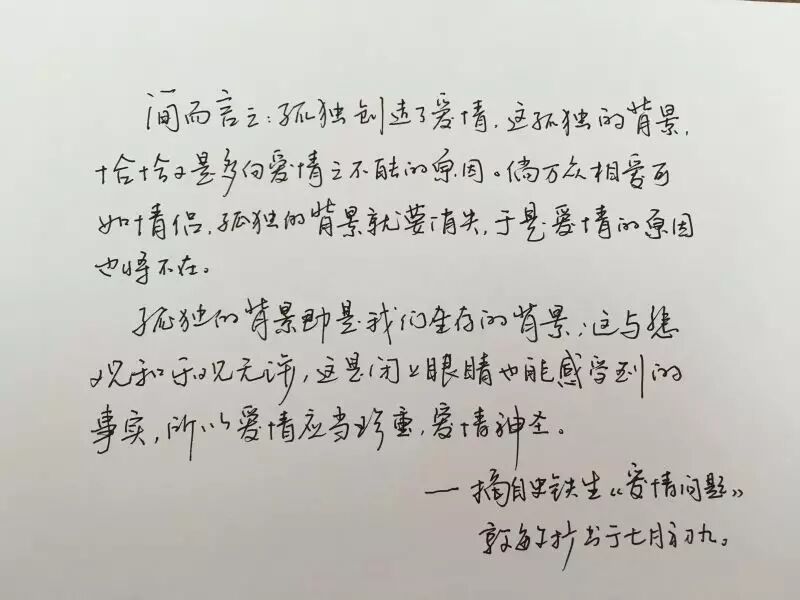 简而言之：孤独创造了爱情，这孤独的背景，
恰恰又是多向爱情之不能的原因。倘万众相爱可
如情侣，孤独的背景就要消失，于是爱情的原因
也将不在。
孤独的背景即是我们生存的背景；这与悲
观和乐观无涉，这是闭上眼睛也能感受到的
事实，所以爱情应当珍重，爱情神圣。
——摘自史铁生《爱情问题》
敏抄书于七月初九。